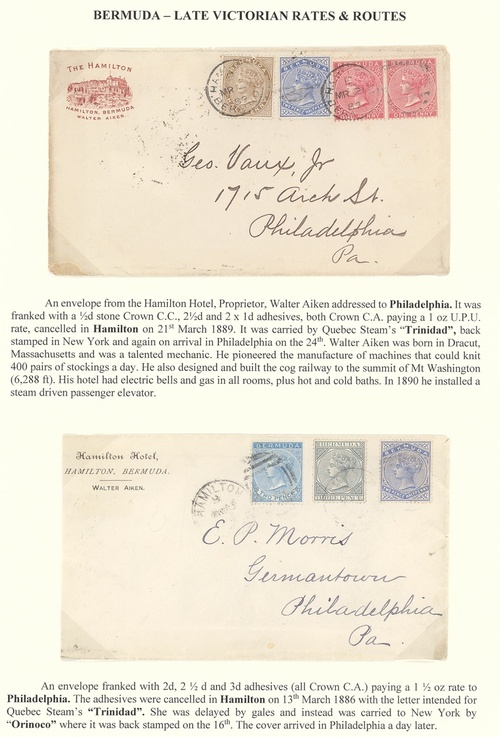 BERMUDA – LATE VICTORIAN RATES & ROUTES
THE HAMILTON
HAMILTON, BERMUDA
WALTER AIKEN.
BERMUDA
ONE PENNY
Geo. Vaux, Jr
1715 Arch St.
Philadelphia
Pa.
An envelope from the Hamilton Hotel, Proprietor, Walter Aiken addressed to Philadelphia. It was
franked with a ½d stone Crown C.C., 2½d and 2 x 1d adhesives, both Crown C.A. paying a 1 oz U.P.U.
rate, cancelled in Hamilton on 21st March 1889. It was carried by Quebec Steam's "Trinidad", back
stamped in New York and again on arrival in Philadelphia on the 24th. Walter Aiken was born in Dracut,
Massachusetts and was a talented mechanic. He pioneered the manufacture of machines that could knit
400 pairs of stockings a day. He also designed and built the cog railway to the summit of Mt Washington
(6,288 ft). His hotel had electric bells and gas in all rooms, plus hot and cold baths. In 1890 he installed a
steam driven passenger elevator.
Hamilton Hotel,
HAMILTON, BERMUDA.
WALTER AIKEN.
HAMILTON
BERMUDA
BERMUDA
BERMUDA
TWO PENCE
THREE PENCE
E. P. Morris
Germantown
Philadelphia
Pa
An envelope franked with 2d, 2 ½ d and 3d adhesives (all Crown C.A.) paying a 1 ½ oz rate to
Philadelphia. The adhesives were cancelled in Hamilton on 13th March 1886 with the letter intended for
Quebec Steam's "Trinidad". She was delayed by gales and instead was carried to New York by
"Orinoco" where it was back stamped on the 16th. The cover arrived in Philadelphia a day later.